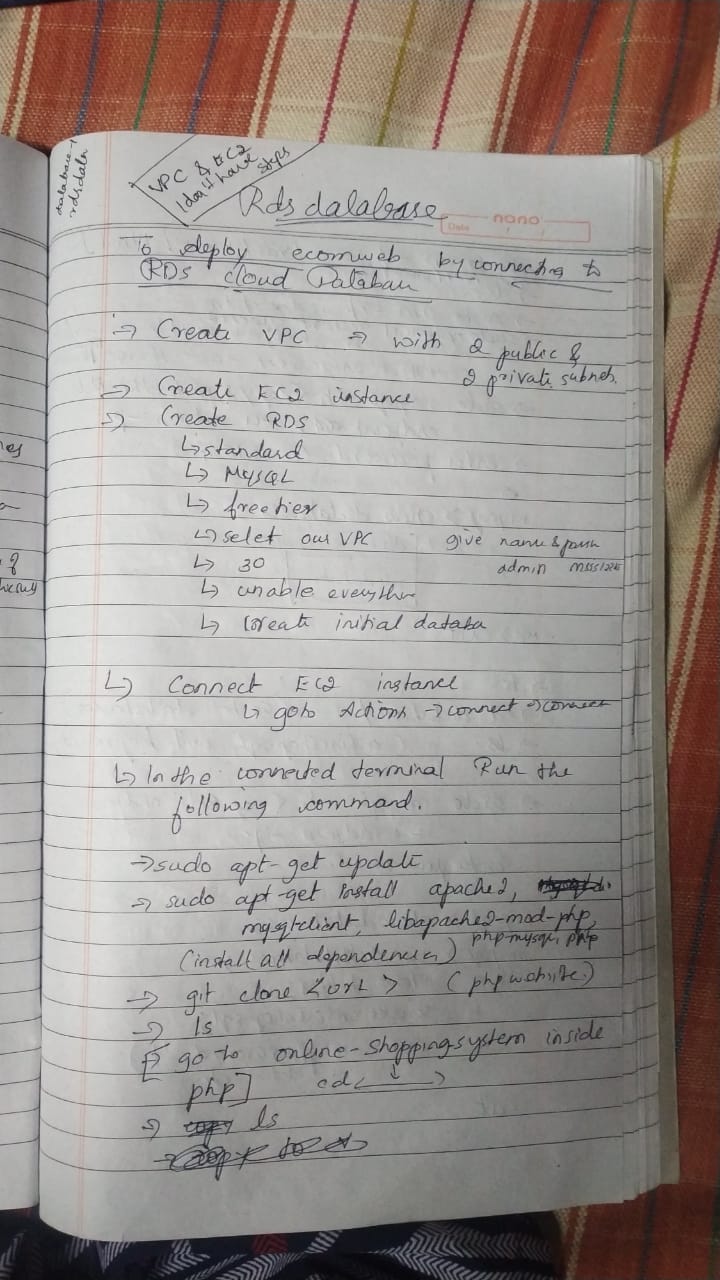 database-1
rdsdata
VPC & EC2
I don't have
steps
Rds dalabase
nano
Date
To deploy ecomweb by connecting to
RDS cloud Databau
→ Create VPC → with 2 public &
2 private subnets.
→ Create EC2 instance
→ Create RDS
↳ standard
↳ MySQL
↳ freetier
↳ selet our VPC give name & pass
↳ 30 admin
↳ unable everythin
↳ Create initial databa
↳ Connect EC2 instance
↳ goto Actions → connect → connect
↳ In the connected terminal Run the
following command.
→ sudo apt-get update
→ sudo apt-get install apache2,
mysqlclient, libapache2-mod-php,
(install all dependencies) php-mysql, php
→ git clone <url> (php website)
→ ls
[→ go to online-shoppingsystem inside
php] cd < ↓ >
→ ls